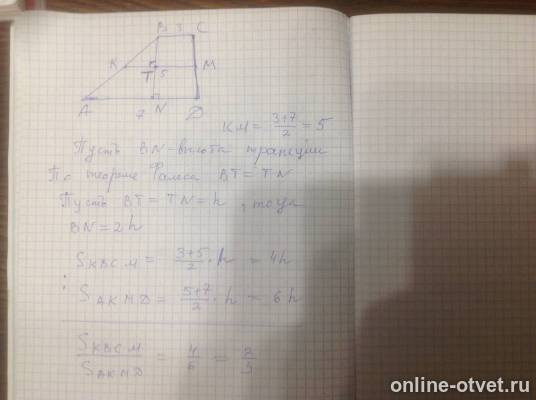 B 3 C
K T 5 M
A 7 N D
KM = 3+7/2 = 5
Пусть BN - высота трапеции
По теореме Фалеса BT = TN
Пусть BT = TN = h, тогда
BN = 2h
SKBCM = 3+5/2 · h = 4h
SAKMD = 5+7/2 · h = 6h
SKBCM/SAKMD = 4/6 = 2/3
online-otvet.ru